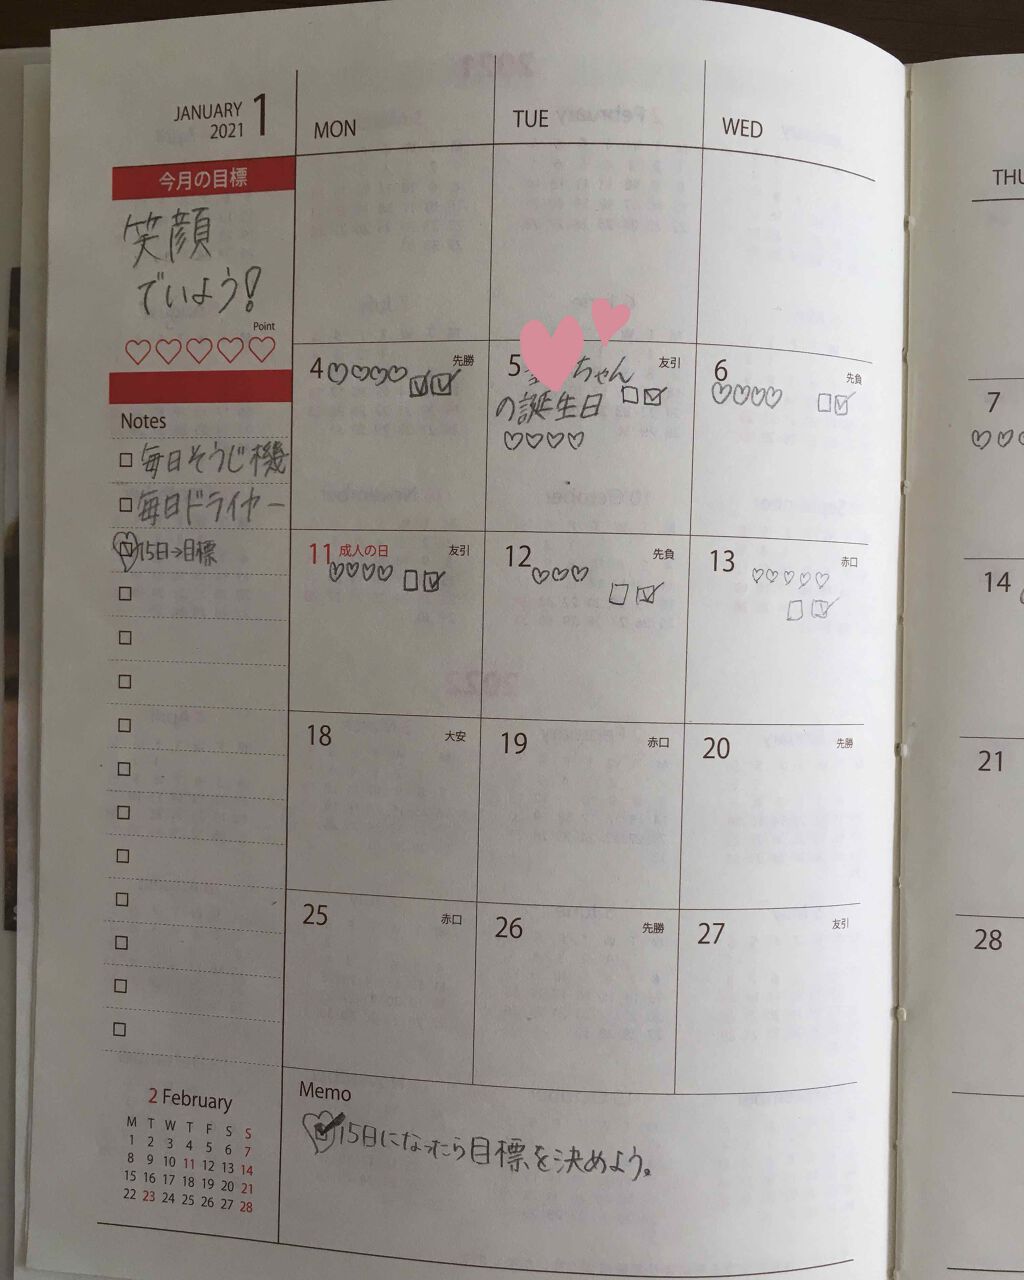 JANUARY 1
2021
MON
TUE
WED
THU
今月の目標
笑顔
でいよう!
Point
Notes
毎日そうじ機
毎日ドライヤー
15日→目標
4 先勝
5 ちゃん 友引
の誕生日
6 先負
7
11 成人の日 友引
12 先負
13 赤口
14
18 大安
19 赤口
20 先勝
21
25 赤口
26 先勝
27 友引
28
2 February
M T W T F S S
1 2 3 4 5 6 7
8 9 10 11 12 13 14
15 16 17 18 19 20 21
22 23 24 25 26 27 28
Memo
15日になったら目標を決めよう。